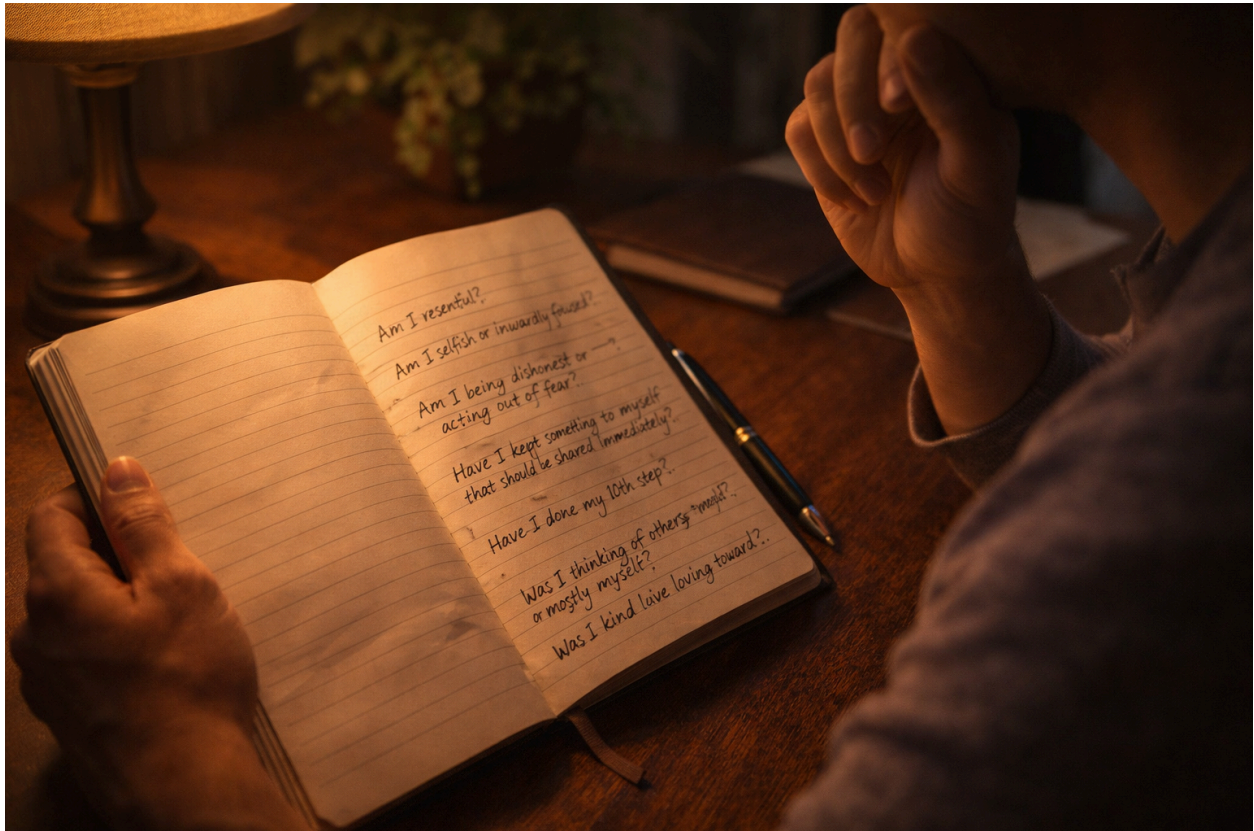 Am I resentful?
Am I selfish or inwardly focused?
Am I being dishonest or —?
acting out of fear?
Have I kept something to myself
that should be shared immediately?
Have I done my 10th step?
Was I thinking of others
or mostly myself?
Was I kind loving toward?